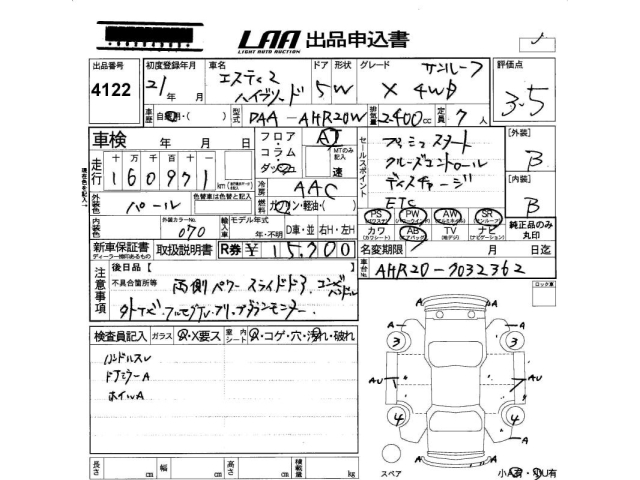 LAA 出品申込書
LIGHT AUTO AUCTION
出品番号 初度登録年月 車名 ドア 形状 グレード サンルーフ 評価点
4122 21年 月 エスティマ ハイブリッド 5 W X 4WD 3.5
車歴 自家用・( ) 型式 DAA-AHR20W 排気量 2400cc 定員 7人
車検 年 月 日 フロア・コラム・ダッシュ AT MTのみ記入 速
走行 十万千百十一
160971 km
冷房 AAC
外装色 パール 色替車は色替と記入 燃料 ガソリン・軽油・( )
内装色 外装カラーNo. 070 輸入車 モデル年式 年・不明 D車・並 右H・左H
セールスポイント プッシュスタート
クルーズコントロール
ETC
[外装] B
[内装] B
PS PW AW SR
(パワステ) (パワーウインド) (アルミホイル) (サンルーフ)
カワ AB TV ナビ
(カワシート) (エアバッグ) (地デジ) (ナビゲーション)
純正品のみ丸印
新車保証書 取扱説明書 R券 ¥15,700 名変期限 月 日迄
ディーラー捺印あるもの
車台No. AHR20-7032362
ロック車
注意事項 後日品【
不具合箇所等 両側パワースライドドア コンビハンドル
検査員記入 ガラス X・X要ス 室内シート X・コゲ・穴・汚れ・破れ
ハンドルスレ
ドアミラーA
ホイルA
A A
3 3
AU AU
4 4
A
A A
長さ cm 幅 cm 高さ cm 積載量 kg
スペア 小A有・小U有